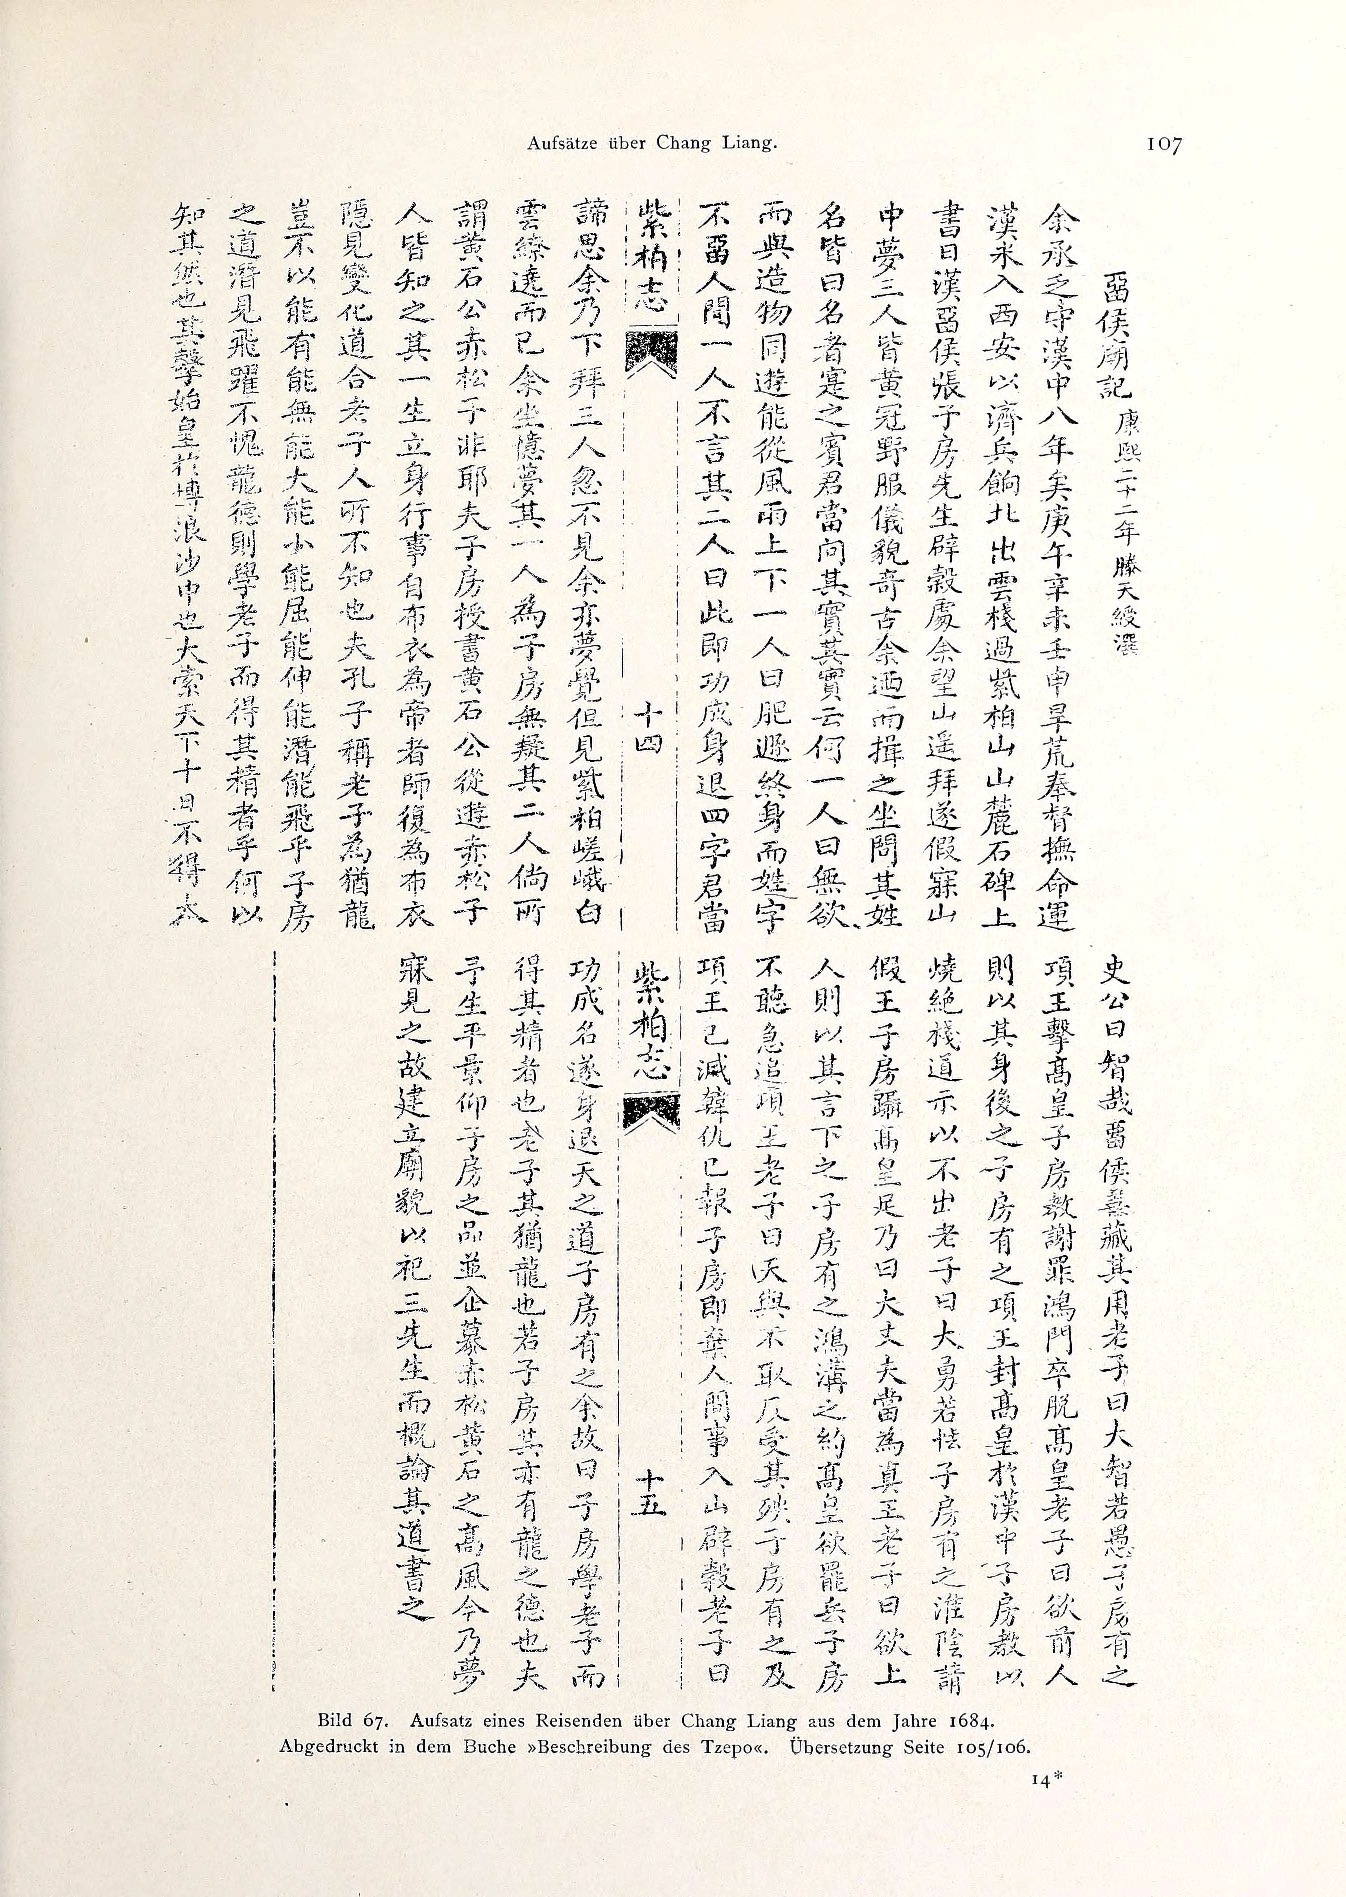 Aufsätze über Chang Liang.
107
畱侯廟記 康熙二十二年 滕天綬選
余承乏守漢中八年矣庚午辛未壬申旱荒奉督撫命運
漢米入西安以濟兵餉北出雲棧過紫柏山山麓石碑上
書曰漢畱侯張子房先生辟穀處余望山遥拜遂假寐山
中夢三人皆黃冠野服儀貌奇古余迺而揖之坐問其姓
名皆曰名者寔之賓君當问其實其實云何一人曰無欲
而與造物同遊能從風雨上下一人曰肥遯終身而姓字
不畱人間一人不言其二人曰此即功成身退四字君當
紫柏志
十四
諦思余乃下拜三人忽不見余亦夢覺但見紫柏嵯峨白
雲繚遶而已余坐憶夢其一人為子房無疑其二人倘所
謂黃石公赤松子非耶夫子房授書黃石公從遊赤松子
人皆知之其一生立身行事自布衣為帝者師復為布衣
隱見變化道合老子人所不知也夫孔子稱老子為猶龍
豈不以能有能無能大能小能屈能伸能潛能飛乎子房
之道潛見飛躍不愧龍德則學老子而得其精者乎何以
知其然也其擊始皇於博浪沙中也大索天下十日不得太
史公曰智哉畱侯善藏其用老子曰大智若愚子房有之
項王擊高皇子房教謝罪鴻門卒脱高皇老子曰欲前人
則以其身後之子房有之項王封高皇於漢中子房教以
燒絶棧道示以不出老子曰大勇若怯子房有之淮陰請
假王子房躡高皇足乃曰大丈夫當為真王老子曰欲上
人則以其言下之子房有之鴻溝之約高皇欲罷兵子房
不聽急追項王老子曰天與不取反受其殃子房有之及
項王已滅韓仇已報子房即棄人間事入山辟穀老子曰
紫柏志
十五
功成名遂身退天之道子房有之余故曰子房學老子而
得其精者也老子其猶龍也若子房其亦有龍之德也夫
予生平景仰子房之品並企慕赤松黃石之高風今乃夢
寐見之故建立廟貌以祀三先生而概論其道書之
Bild 67. Aufsatz eines Reisenden über Chang Liang aus dem Jahre 1684.
Abgedruckt in dem Buche »Beschreibung des Tzepo«. Übersetzung Seite 105/106.
14*